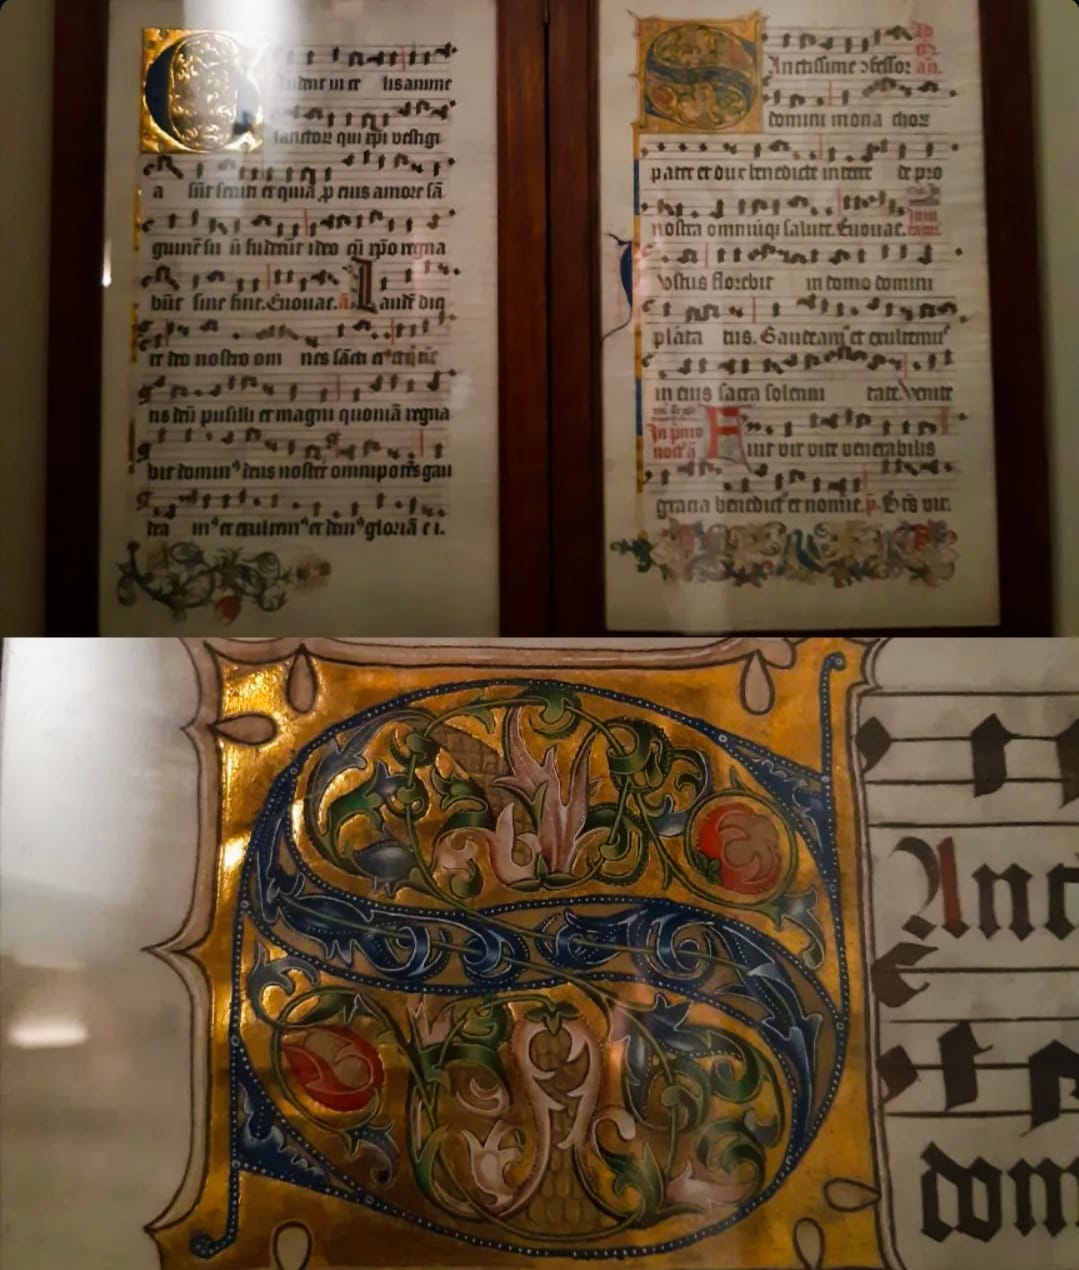 Gaudent in ce lis anime
sanctoꝝ qui xpi vestigi
a sūt secuti et quia p eius amore sā
guinē su ū fuderūt ideo cū xpo regna
būt sine fine. Euouae. a Laudē dic
ite deo nostro om nes sācti ei et
tis deū pusilli et magni quoniā regna
bit dominꝰ deus noster omnipotēs gau
dea mꝰ et exultemꝰ et demꝰ gloriā e i.
Sanctissime ꝯfessor
domini mona choꝝ
pater et dux benedicte interce de pro
nostra omniūqꝫ salute. Euouae.
Iustus florebit in domo domini
plāta tus. Gaudeamꝰ et exultemꝰ
in eius sacra solenni tate. Venite
In pmo
noct ā
Fuit vir vite venerabilis
gracia benedictꝰ et nomīe. p. Btūs vir.
Anct
dom